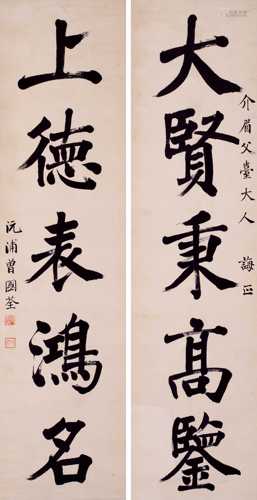 大賢秉高鑒
介眉父臺大人 誨正
上德表鴻名
沅浦曾國荃